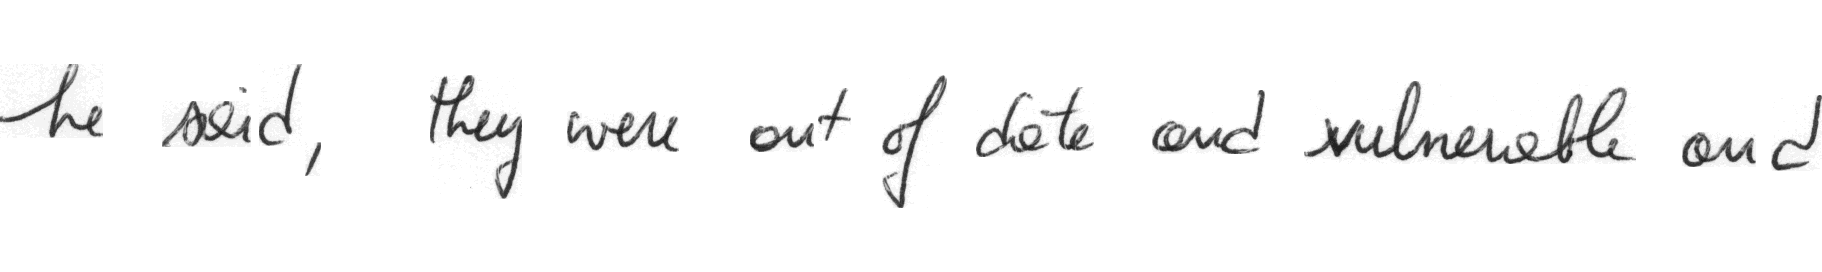 he said, they were out of date and vulnerable and